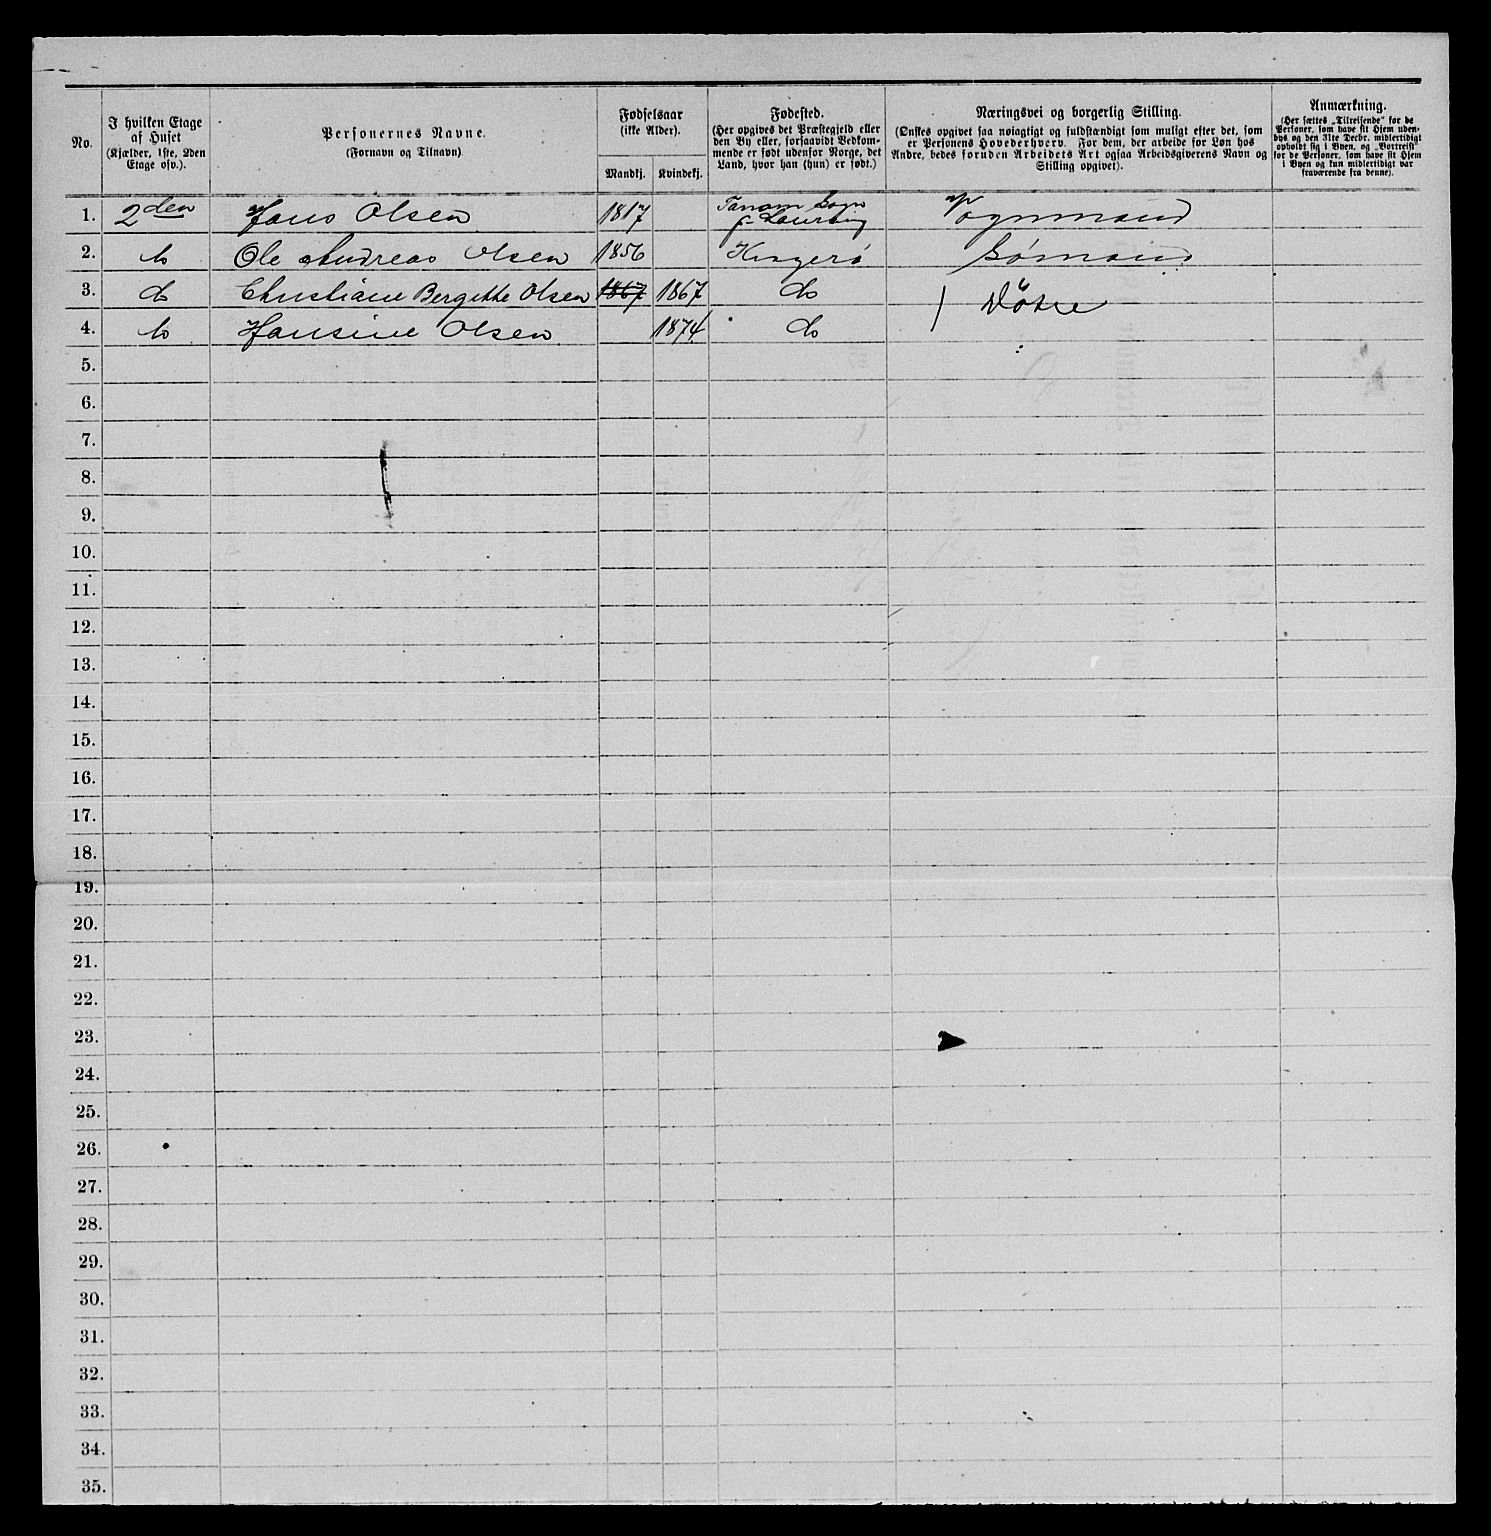 No.
I hvilken Etage af Huset (Kjælder, 1ste, 2den Etage osv.).
Personernes Navne. (Fornavn og Tilnavn).
Fødselsaar (ikke Alder).
Mandkj. Kvindekj.
Fødested. (Her opgives det Præstegjeld eller den By eller, forsaavidt Vedkommende er født udenfor Norge, det Land, hvor han (hun) er født.)
Næringsvei og borgerlig Stilling. (Ønskes opgivet saa nøiagtigt og fuldstændigt som muligt efter det, som er Personens Hovederhverv. For dem, der arbeide for Løn hos Andre, bedes foruden Arbeidets Art ogsaa Arbeidsgiverens Navn og Stilling opgivet).
Anmærkning. (Her sættes „Tilreisende" for de Personer, som have sit Hjem udenbys og den 31te Decbr. midlertidigt opholdt sig i Byen, og „Bortreist" for de Personer, som have sit Hjem i Byen og kun midlertidigt var fraværende fra denne).
1. 2den Hans Olsen 1817 Tanom Sogn Vognmand
2. do Ole Andreas Olsen 1856 Kragerø Sømand
3. do Christiane Bergitte Olsen 1867 1867 do Døtre
4. do Hansine Olsen 1874 do
5.
6.
7.
8.
9.
10.
11.
12.
13.
14.
15.
16.
17.
18.
19.
20.
21.
22.
23.
24.
25.
26.
27.
28.
29.
30.
31.
32.
33.
34.
35.